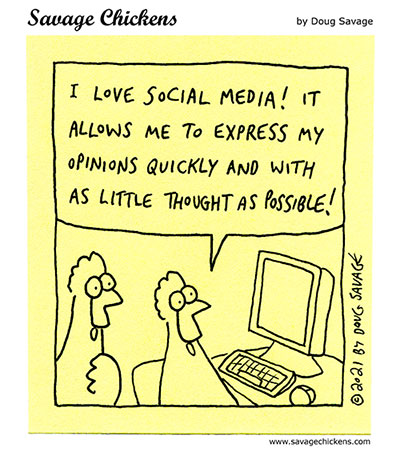 Savage Chickens
by Doug Savage
I LOVE SOCIAL MEDIA! IT
ALLOWS ME TO EXPRESS MY
OPINIONS QUICKLY AND WITH
AS LITTLE THOUGHT AS POSSIBLE!
© 2021 BY DOUG SAVAGE
www.savagechickens.com